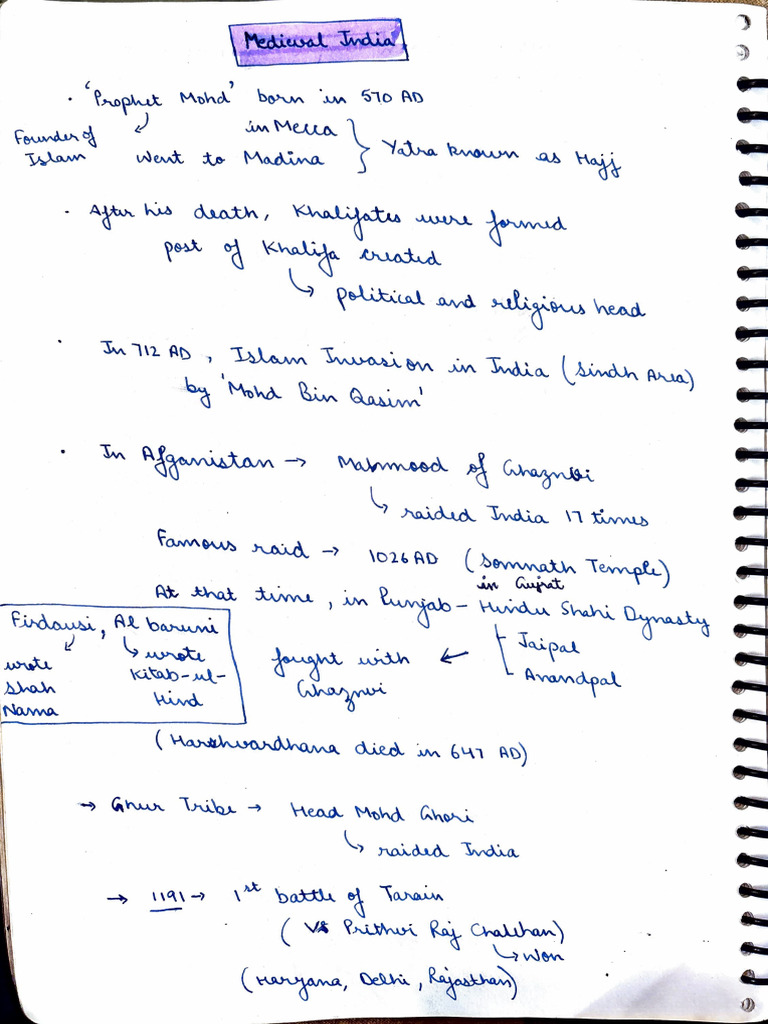 Medieval India
· 'Prophet Mohd' born in 570 AD
Founder of Islam
in Mecca
went to Madina } Yatra known as Hajj
· After his death, Khalifates were formed
post of Khalifa created
↳ political and religious head
· In 712 AD, Islam Invasion in India (Sindh Area)
by 'Mohd Bin Qasim'
· In Afganistan → Mahmood of Ghaznvi
↳ raided India 17 times
Famous raid → 1026 AD (Somnath Temple)
in Gujrat
At that time, in Punjab - Hindu Shahi Dynasty
Jaipal
Anandpal
fought with ←
Ghaznvi
Firdausi, Al baruni
wrote Shah Nama
↳ wrote Kitab-ul-Hind
(Harshvardhana died in 647 AD)
→ Ghur Tribe → Head Mohd Ghori
↳ raided India
→ 1191 → 1st battle of Tarain
(Vs Prithvi Raj Chauhan)
↳ won
(Haryana, Delhi, Rajasthan)